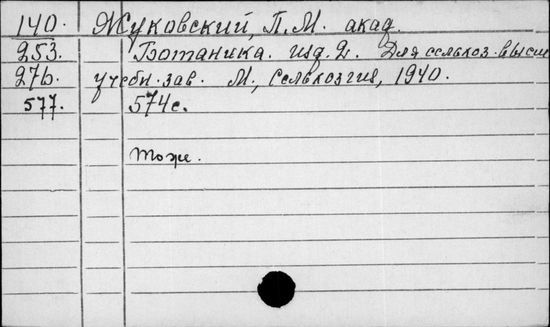 140. Жуковский, П.М. акад.
253. Ботаника. изд. 2. Для сельхоз. высш
27b. учебн. зав. М., Сельхозгиз, 1940.
577. 574с.
тоже.